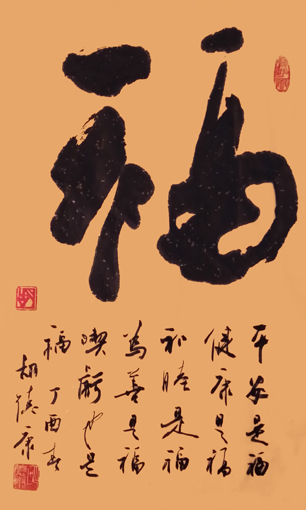 福
平安是福
健康是福
和睦是福
为善是福
喫亏也是
福 丁酉春
胡德康